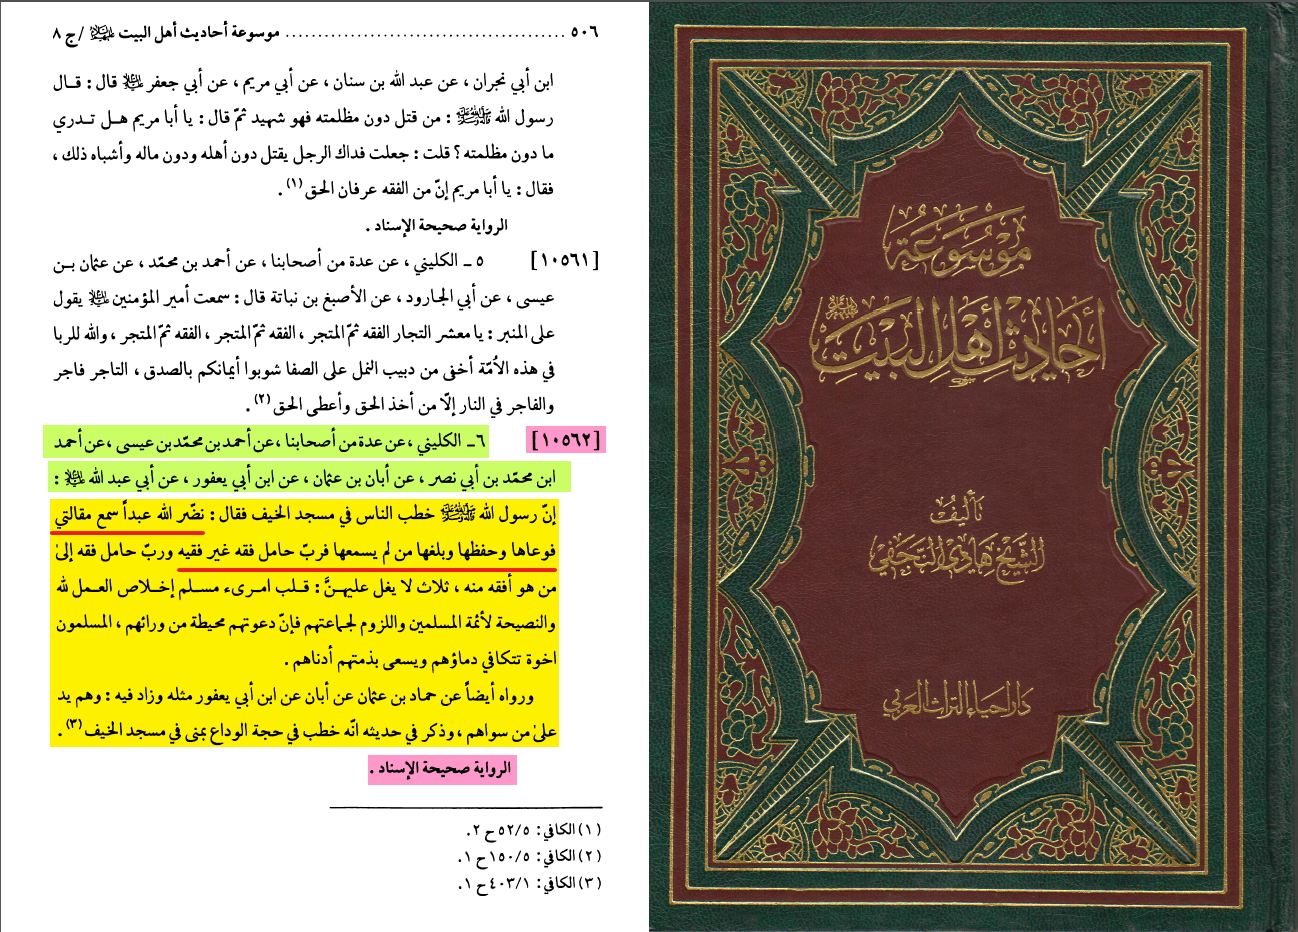 ٥٠٦ ........................................... موسوعة أحاديث أهل البيت عليهم السلام / ج ٨
ابن أبي نجران ، عن عبد الله بن سنان ، عن أبي مريم ، عن أبي جعفر عليه السلام قال : قـال
رسول الله ﷺ : من قتل دون مظلمته فهو شهيد ثمّ قال : يا أبا مريم هـل تـدري
ما دون مظلمته ؟ قلت : جعلت فداك الرجل يقتل دون أهله ودون ماله وأشباه ذلك ،
فقال : يا أبا مريم إنّ من الفقه عرفان الحق (١) .
الرواية صحيحة الإسناد .
[١٠٥٦١] ٥ ـ الكليني ، عن عدة من أصحابنا ، عن أحمد بن محمّد ، عن عثمان بـن
عيسى ، عن أبي الجارود ، عن الأصبغ بن نباتة قال : سمعت أمير المؤمنين عليه السلام يقول
على المنبر : يا معشر التجار الفقه ثمّ المتجر ، الفقه ثمّ المتجر ، الفقه ثمّ المتجر ، والله للربا
في هذه الأمّة أخفى من دبيب النمل على الصفا شوبوا أيمانكم بالصدق ، التاجر فاجر
والفاجر في النار إلّا من أخذ الحق وأعطى الحق (٢) .
[١٠٥٦٢] ٦ ـ الكليني ، عن عدة من أصحابنا ، عن أحمد بن محمّد بن عيسى ، عن أحمد
ابن محمّد بن أبي نصر ، عن أبان بن عثمان ، عن ابن أبي يعفور ، عن أبي عبد الله عليه السلام :
إنّ رسول الله ﷺ خطب الناس في مسجد الخيف فقال : نضّر الله عبداً سمع مقالتي
فوعاها وحفظها وبلغها من لم يسمعها فربّ حامل فقه غير فقيه وربّ حامل فقه إلىٰ
من هو أفقه منه ، ثلاث لا يغل عليهـنَّ : قـلب امـرىء مسـلم إخـلاص العـمل لله
والنصيحة لأئمة المسلمين واللزوم لجماعتهم فإنّ دعوتهم محيطة من ورائهم ، المسلمون
اخوة تتكافي دماؤهم ويسعى بذمتهم أدناهم .
ورواه أيضاً عن حماد بن عثمان عن أبان عن ابن أبي يعفور مثله وزاد فيه : وهم يد
علىٰ من سواهم ، وذكر في حديثه انّه خطب في حجة الوداع بمنى في مسجد الخيف (٣) .
الرواية صحيحة الإسناد .
(١) الكافي : ٥٢/٥ ح ٢.
(٢) الكافي : ١٥٠/٥ ح ١.
(٣) الكافي : ٤٠٣/١ ح ١.
موسوعة
أحاديث أهل البيت عليهم السلام
تأليف
الشيخ هادي النجفي
دار احياء التراث العربي